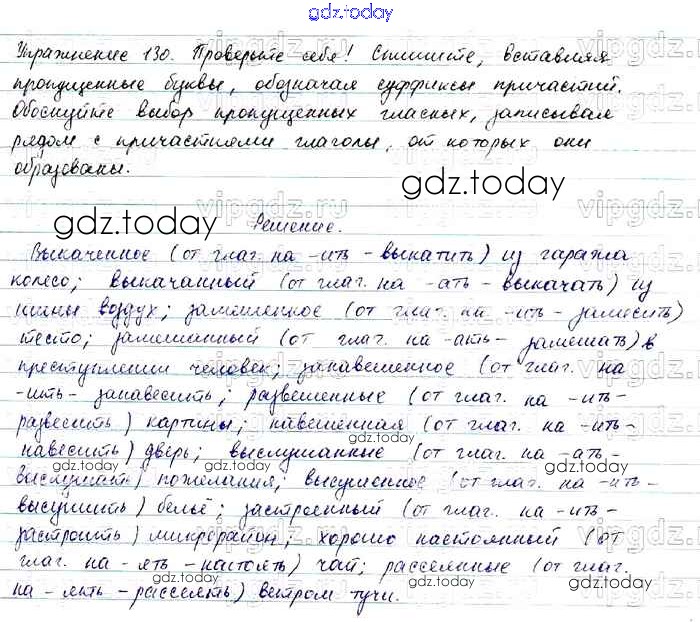 gdz.today
Упражнение 130. Проверьте себя! Спишите, вставляя
пропущенные буквы, обозначая суффиксы причастий.
Обоснуйте выбор пропущенных гласных, записывая
рядом с причастиями глаголы, от которых они
образованы.
gdz.today
gdz.today
Решение.
Выкаченное (от глаг. на -ить - выкатить) из гаража
колесо; выкачанный (от глаг. на -ать - выкачать) из
шины воздух; замешенное (от глаг. на -ить - замесить)
тесто; замешанный (от глаг. на -ать- замешать) в
преступлении человек; занавешенное (от глаг. на
-ить- занавесить; развешенные (от глаг. на -ить-
развесить) картины; навешенная (от глаг. на -ить-
навесить) дверь; выслушанные (от глаг. на -ать-
выслушать) пожелания; высушенное (от глаг. на -ить-
высушить) бельё; застроенный (от глаг. на -ить-
застроить) микрорайон; хорошо настоянный (от
глаг. на -ять -настоять) чай; рассеянные (от глаг.
на -ять -рассеять) ветром тучи.
gdz.today
gdz.today
gdz.today
gdz.today
gdz.today
gdz.today